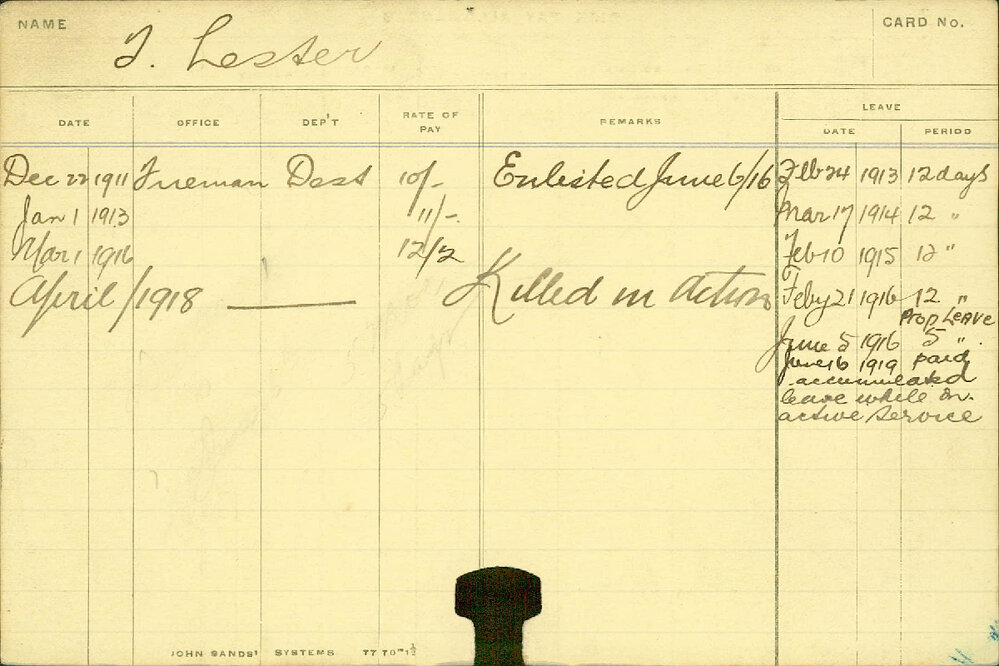 NAME T. Lester CARD No.
LEAVE
DATE OFFICE DEP'T RATE OF PAY REMARKS DATE PERIOD
Dec 22 1911 Fireman Dest 10/- Enlisted June 6/16 Feb 24 1913 12 days
Jan 1 1913 11/- Mar 17 1914 12 "
Mar 1 1916 12/2 Feb 10 1915 12 "
April /1918 — Killed in Action Feby 21 1916 12 "
Prop Leave
June 5 1916 5 "
June 16 1919 paid
accumulated
leave while on
active Service
JOHN SANDS' SYSTEMS